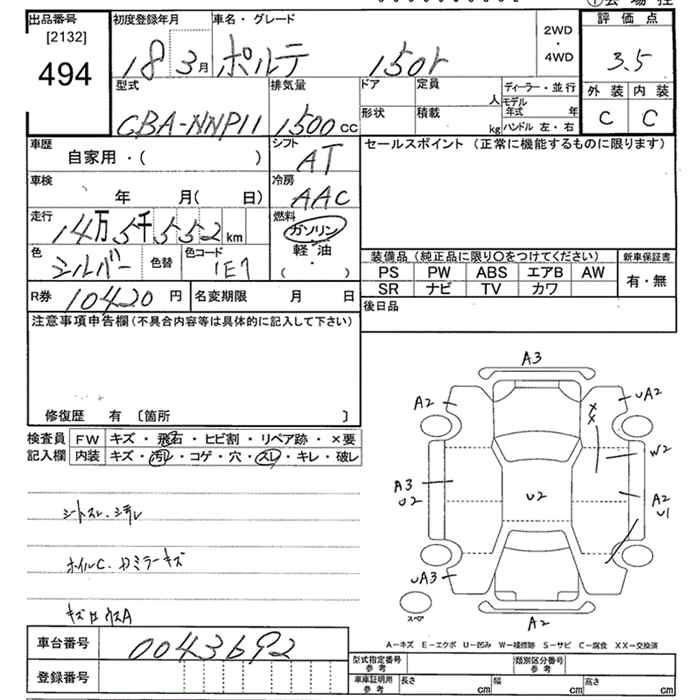 出品番号
[2132]
494
初度登録年月
18 3月
車名・グレード
ポルテ 150r
2WD
・
4WD
評価点
3.5
外装 内装
C C
型式
CBA-NNP11
排気量
1500cc
ドア
定員
人
形状
積載
kg
ディーラー・並行
モデル
年式 年
ハンドル 左・右
車歴
自家用・( )
シフト
AT
セールスポイント(正常に機能するものに限ります)
車検
年 月( 日)
冷房
AAC
走行
14万5千552km
燃料
ガソリン
軽油
・
( )
色
シルバー
色替
色コード
1E7
装備品(純正品に限り〇をつけてください)
新車保証書
PS PW ABS エアB AW
有・無
SR ナビ TV カワ
R券 10420円
名変期限 月 日
後日品
注意事項申告欄(不具合内容等は具体的に記入して下さい)
修復歴 有〔箇所 〕
検査員
記入欄
FW キズ・飛石・ヒビ割・リペア跡・×要
内装 キズ・汚れ・コゲ・穴・スレ・キレ・破レ
ホイルC.
A3
A2
UA2
X
X
W2
A3
U2
U2
A2
U1
UA3
スペア
A2
A-キズ E-エクボ U-凹み W-補修跡 S-サビ C-腐食 XX-交換済
車台番号
0043692
登録番号
型式指定番号
参考
類別区分番号
参考
車庫証明用
参考
長さ cm
幅 cm
高さ cm